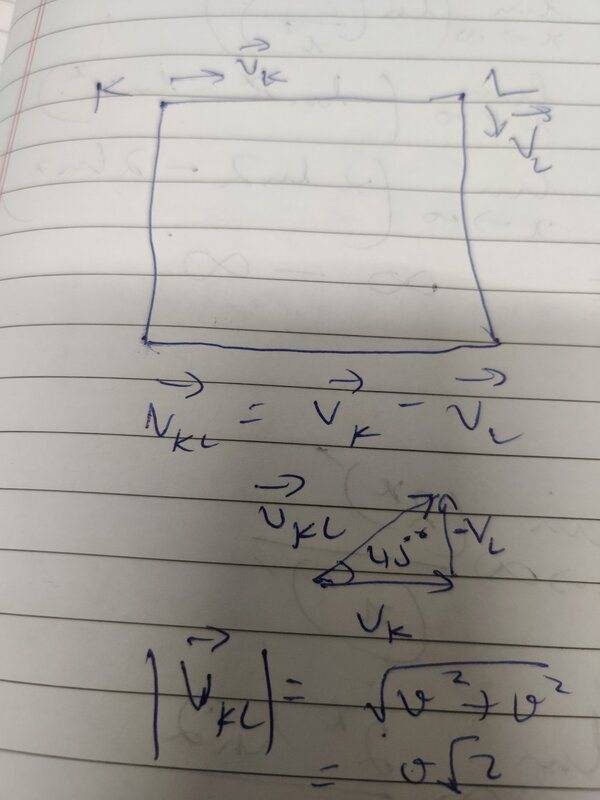 K → v⃗_K L
↓ V⃗_L
V⃗_KL = V⃗_K - V⃗_L
v⃗_KL 45° -V_L
v_K
|V⃗_KL| = √(v² + v²)
= v√2